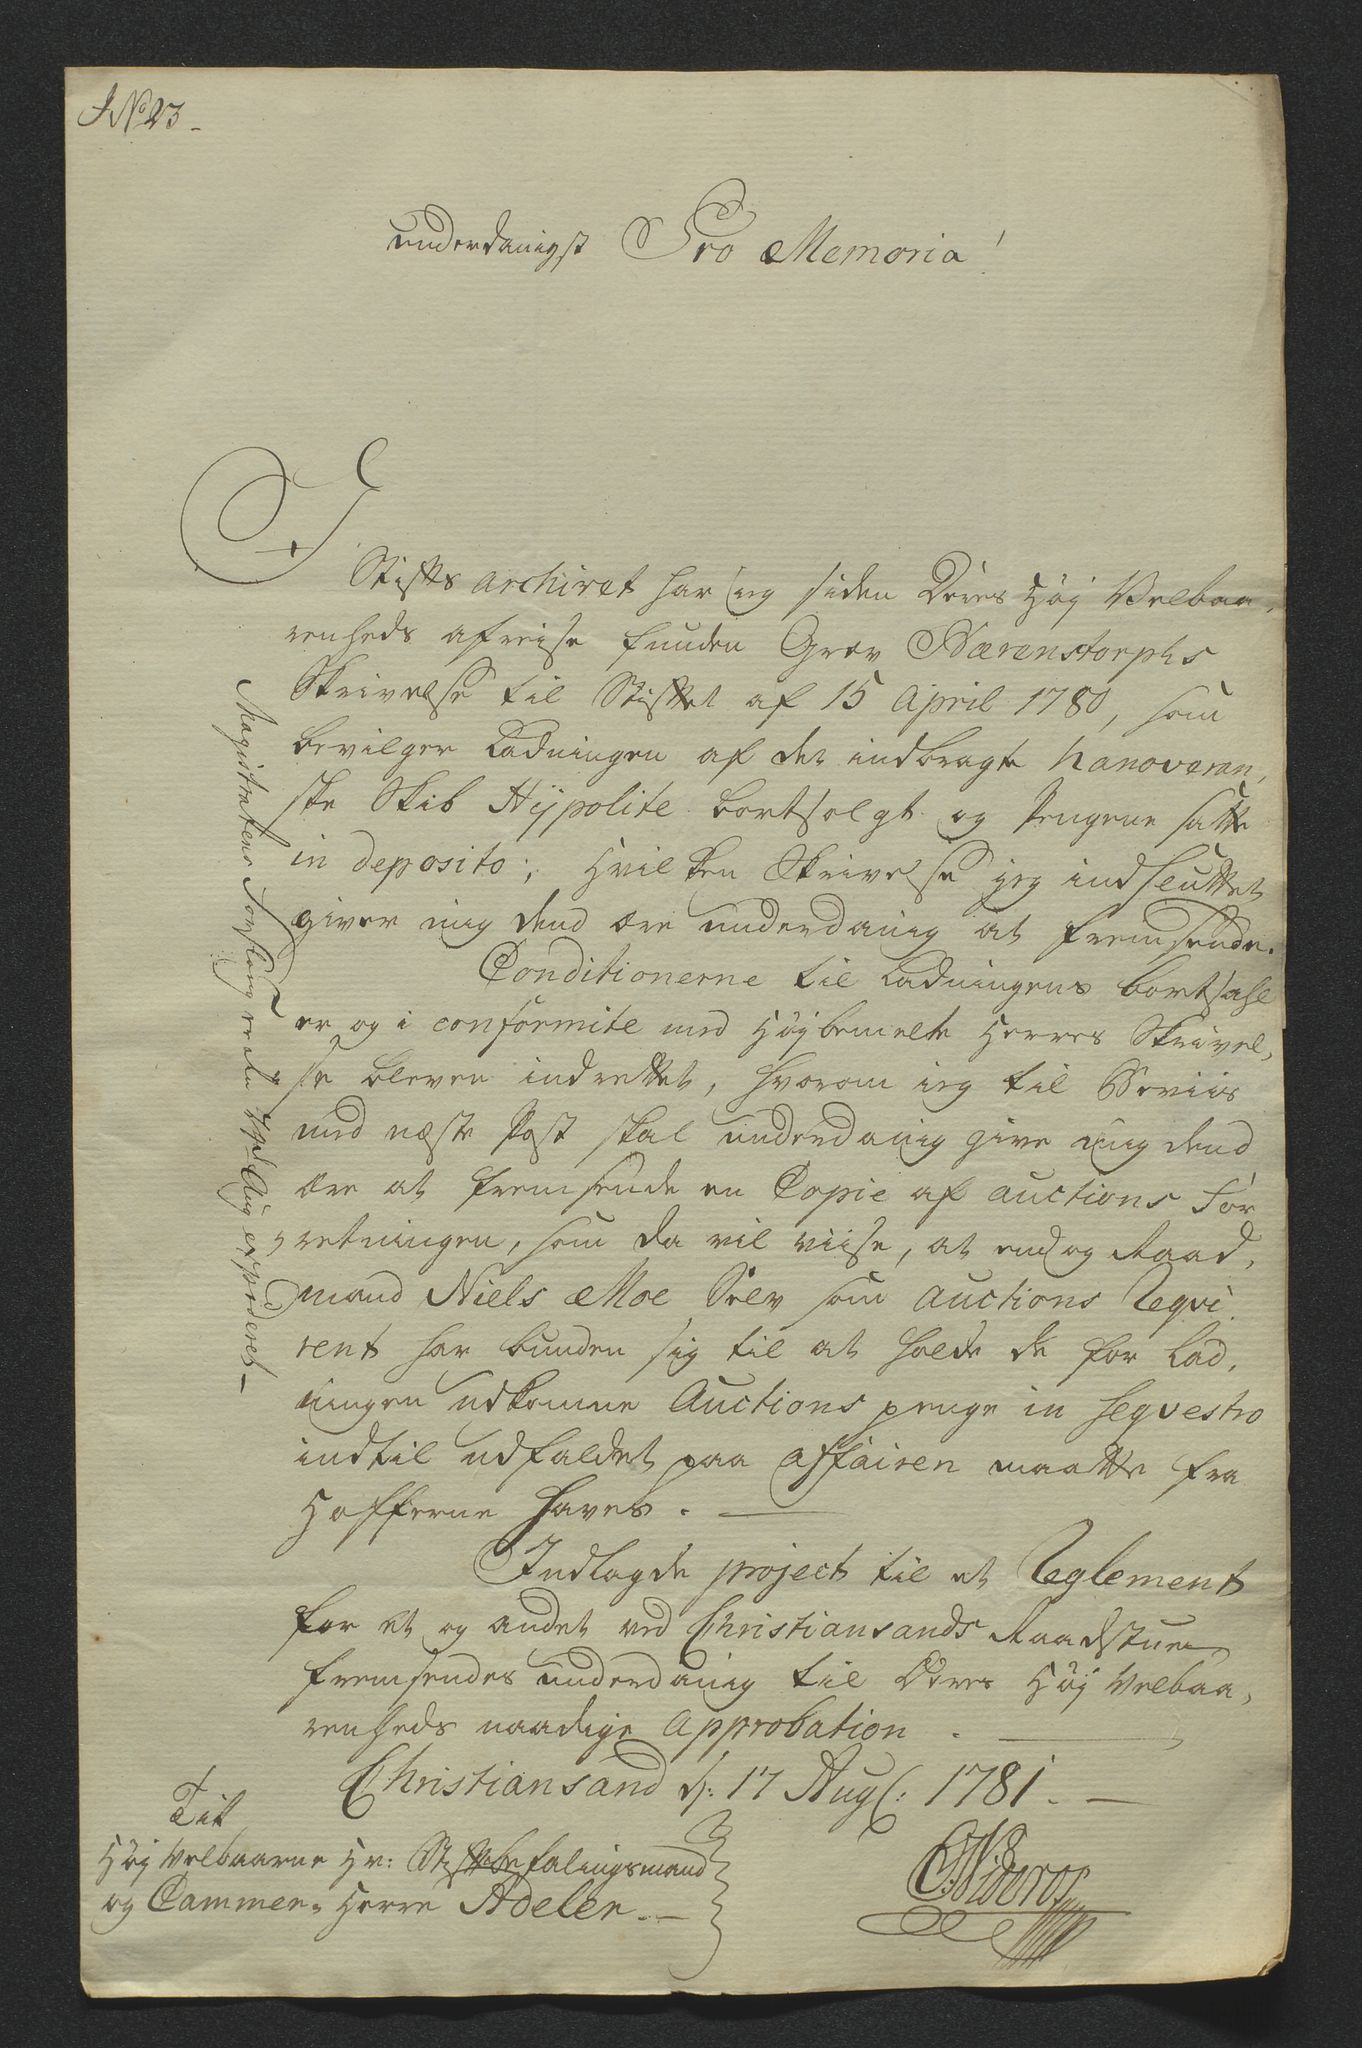 J No 23
underdanigst Pro Memoria!
I
Stifts archivet har ieg siden Deres Høj Velbaa-
renheds afreise funden Grev Bærenstorphs
Skrivelse til Stiftet af 15 April 1780, som
bevilger Ladningen af det indbragte hanoveran-
ske Skib Hÿpolite bortsolgt og Pengene satte
in deposito; Hvilken Skrivelse jeg indsluttet
giver mig dend ære underdanig at fremsende.
Conditionerne til Ladningens bortsalg
er og i conformite med Højbemelte Herres Skrivel-
se bleven indrettet, hvorom ieg til Beviis
med næste Post skal underdanig give mig dend
ære at fremsende en Copie af auctions For-
retningen, som da vil viise, at endog Raad-
mand Niels Moe Selv som auctions Reqvi-
rent har bunden sig til at holde de for Lad-
ningen udkomne Auctions penge in seqvestro
indtil udfaldet paa affairen maatte fra
Hofferne haves.
Indlagde project til et Reglement
for et og andet ved Christiansands Raadstue
fremsendes underdanig til Deres Høj Velbaa-
renheds naadige approbation.
Christiansand d: 17 Aug: 1781.
Tit
Høj Velbaarne Hr: Stiftbefalingsmand
og Cammer-Herre Adeler.
Magistratens Forslag er den Aug expederet